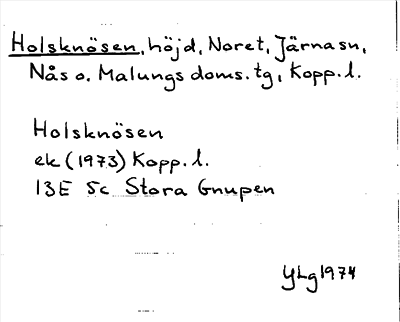 Holsknösen, höjd, Noret, Järna sn,
Nås o. Malungs doms. tg, Kopp. l.
Holsknösen
ek (1973) Kopp. l.
13E 5c Stora Gnupen
YLg 1974